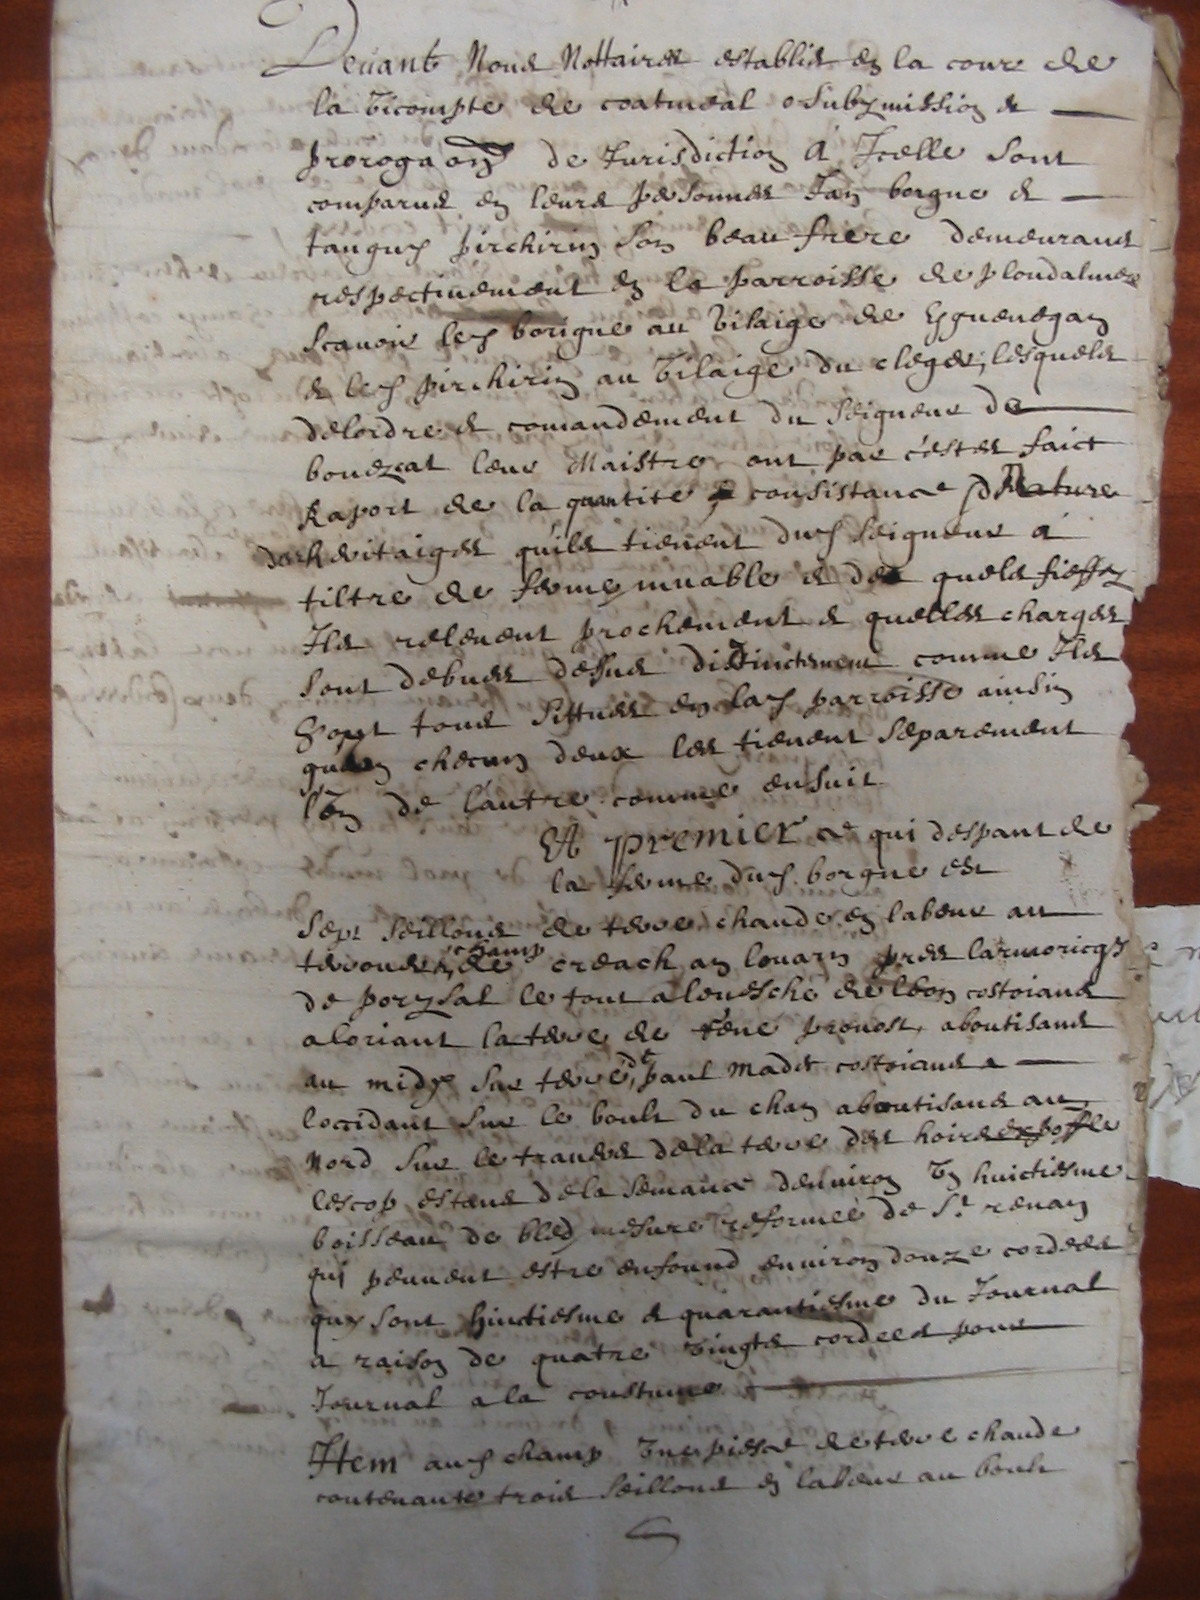 Devant Nous Nottaires establis en la cour de
la Vicompte de coatmeal o subzmission et
prorogaon de Jurisdiction a Jcelle sont
comparus en leurs personnes Jan borgne et
tanguy pirchirin son beau frere demeurant
respectivement en la parroisse de ploudalmez
scavoir led borigne au Vilaige de
et led pirchirin au Vilaige du cleger, lesquels
delordre et comandement du seigneur de
bouezcat leur Maistre ont par cestes faict
Raport de la quantite consistance
des heritaiges quils tienent dud seigneur a
tiltre de ferme muable et de quels fieffz
Ils relevent prochement et quelles charges
sont debues desus distinctement comme Ils
sont tous sittues en lad parroisse ainsin
quen checun deux les tienent separement
lun de lautre comme ensuit
Et premier ce qui despant de
la ferme dud borgne est
Sept seillons de terre chaude en labeur au
terouer, de champ creach an louarn pres larmoricq
de porzsal le tout a levesche de leon costoiant
a loriant la terre de rene provost, aboutisant
au midy sur terre de paul madec costoiant a
loccidant sur le boult du chan aboutisant au
Nord sur le travers de la terre des hoirs
lescop estant de la semance denviron Un huictiesme
boisseau de bled mesure reformee de St renan
qui peuvent estre enfound environ douze cordees
quy sont huictiesme et quarantiesme du Journal
a raison de quatre vingts cordees pour
Journal a la coustume
Item aud champ Une piesce de terre chaude
contenante trois seillons en labeur au boult